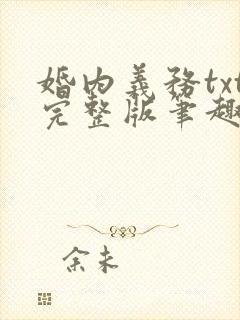 婚内義務txt
完整版筆趣
余未